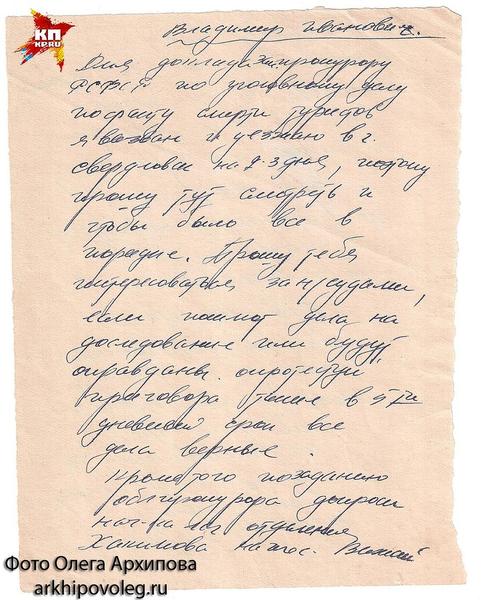 КП
KP.RU
Владимир Иванович.
Для доклада зам. прокурору
РСФСР по уголовному делу
по факту смерти туристов
я вызван и уезжаю в г.
Свердловск на 2-3 дня, поэтому
прошу тут смотреть и
чтобы было все в
порядке. Прошу тебя
интересоваться зан/судами,
если пошлют дела на
доследование или будут
оправданы. опротестуй
приговора такие в 5ти
дневный срок все
дела верные.
Кроме того по заданию
облпрокурора допроси
нач-ка отделения
Хакимова
Фото Олега Архипова
arkhipovoleg.ru